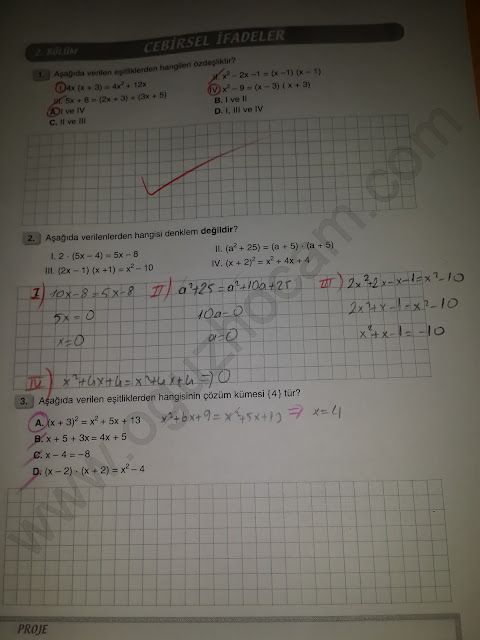 2. BÖLÜM
CEBİRSEL İFADELER
1. Aşağıda verilen eşitliklerden hangileri özdeşliktir?
I. 4x (x + 3) = 4x² + 12x
II. x² – 2x –1 = (x –1) (x – 1)
III. 5x + 8 = (2x + 3) + (3x + 5)
IV. x² – 9 = (x – 3) ( x + 3)
A. I ve IV
B. I ve II
C. II ve III
D. I, III ve IV
2. Aşağıda verilenlerden hangisi denklem değildir?
I. 2 · (5x – 4) = 5x – 8
II. (a² + 25) = (a + 5) · (a + 5)
III. (2x – 1) (x +1) = x² – 10
IV. (x + 2)² = x² + 4x + 4
I) 10x-8=5x-8
5x=0
x=0
II) a²+25=a²+10a+25
10a=0
a=0
III) 2x²+2x-x-1=x²-10
2x²+x-1=x²-10
x²+x-1=-10
IV) x²+4x+4=x²+4x+4 ⇒ 0
3. Aşağıda verilen eşitliklerden hangisinin çözüm kümesi {4} tür?
A. (x + 3)² = x² + 5x + 13
x²+6x+9=x²+5x+13 ⇒ x=4
B. x + 5 + 3x = 4x + 5
C. x – 4 = –8
D. (x – 2) · (x + 2) = x² – 4
www.oguzhocam.com
PROJE